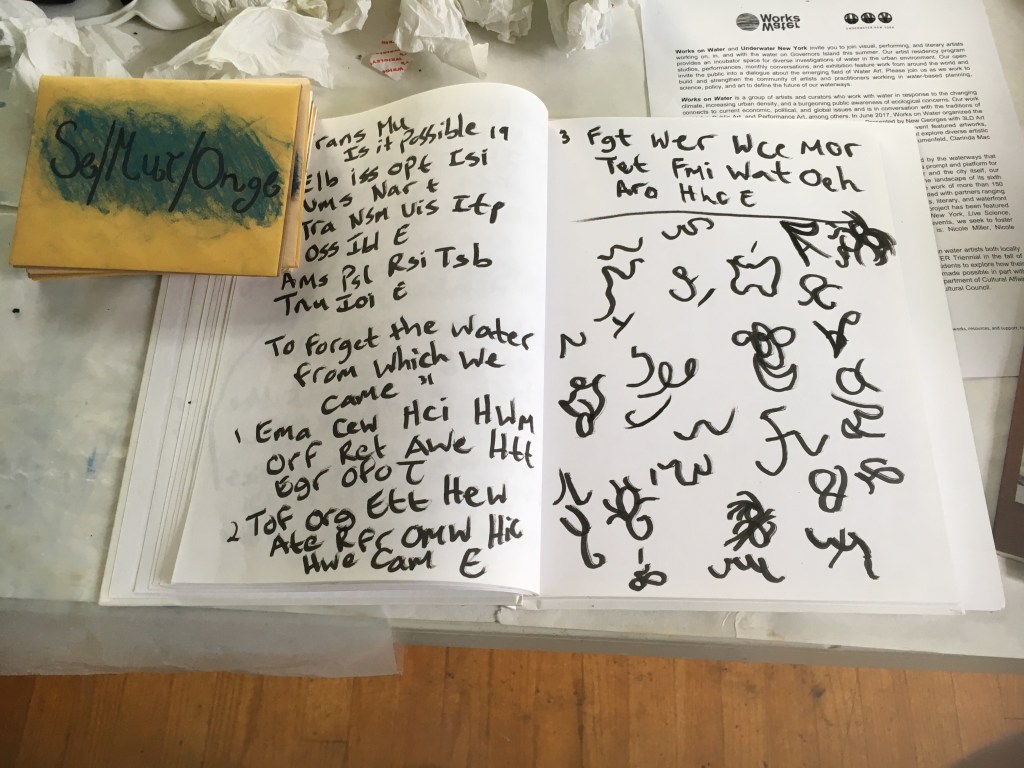 Trans Mu
Is it possible 19
Elb iss opt Isi
Nar t
Tra Nsm Uis Itp
Oss Ibl E
Ams Psl Rsi Tsb
Tnu Ioi E
To forget the water
from which we
came "31
1 Ema Cew Hci HWM
Orf Ret Awe Htt
Egr Ofo T
2 Tof Org Ett Hew
Ate Rfr OMW Hic
Hwe Cam E
3 Fgt Wer Wce Mor
Tet Fmi Wat Oeh
Aro Hhc E
Works
Water
UNDERWATER NEW YORK
Works on Water and Underwater New York invite you to join visual, performing, and literary artists
working on, in, and with the water on Governors Island this summer. Our artist residency program
provides an incubator space for diverse investigations of water in the urban environment. Our open
studios, performances, monthly conversations, and exhibition feature work from around the world and
invite the public into a dialogue about the emerging field of Water Art. Please join us as we work to
build and strengthen the community of artists and practitioners working in water-based planning,
science, policy, and art to define the future of our waterways.
Works on Water is a group of artists and curators who work with water in response to the changing
climate, increasing urban density, and a burgeoning public awareness of ecological concerns. Our work
connects to current economic, political, and global issues and is in conversation with the traditions of
Public Art, and Performance Art, among others. In June 2017, Works on Water organized the
by New Georges with 3LD Art
featured artworks,
explore diverse artistic
Clarinda Mac
by the waterways that
prompt and platform for
and the city itself, our
landscape of its sixth
work of more than 150
with partners ranging
literary, and waterfront
project has been featured
New York, Live Science.
events, we seek to foster
is: Nicole Miller, Nicole
water artists both locally
Triennial in the fall of
to explore how their
made possible in part with
Department of Cultural Affairs
Cultural Council.